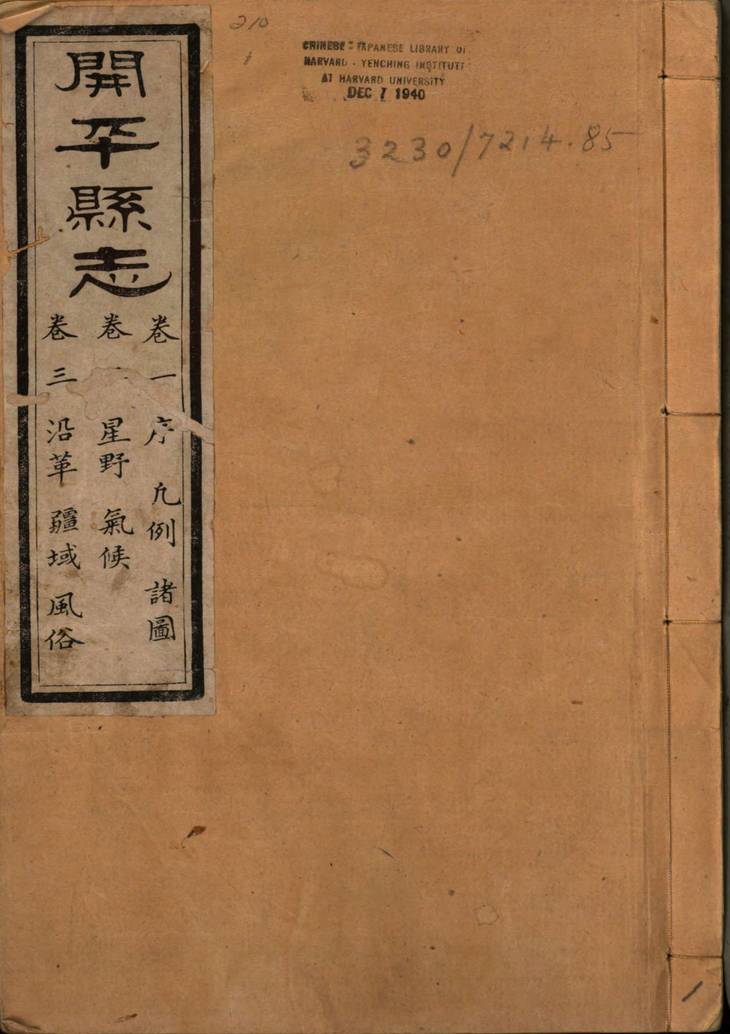 210
1
CHINESE - JAPANESE LIBRARY OF
HARVARD - YENCHING INSTITUTE
AT HARVARD UNIVERSITY
DEC 7 1940
3230/7214.85
開平縣志
卷一 序 凡例 諸圖
卷 星野 氣候
卷三 沿革 疆域 風俗
1